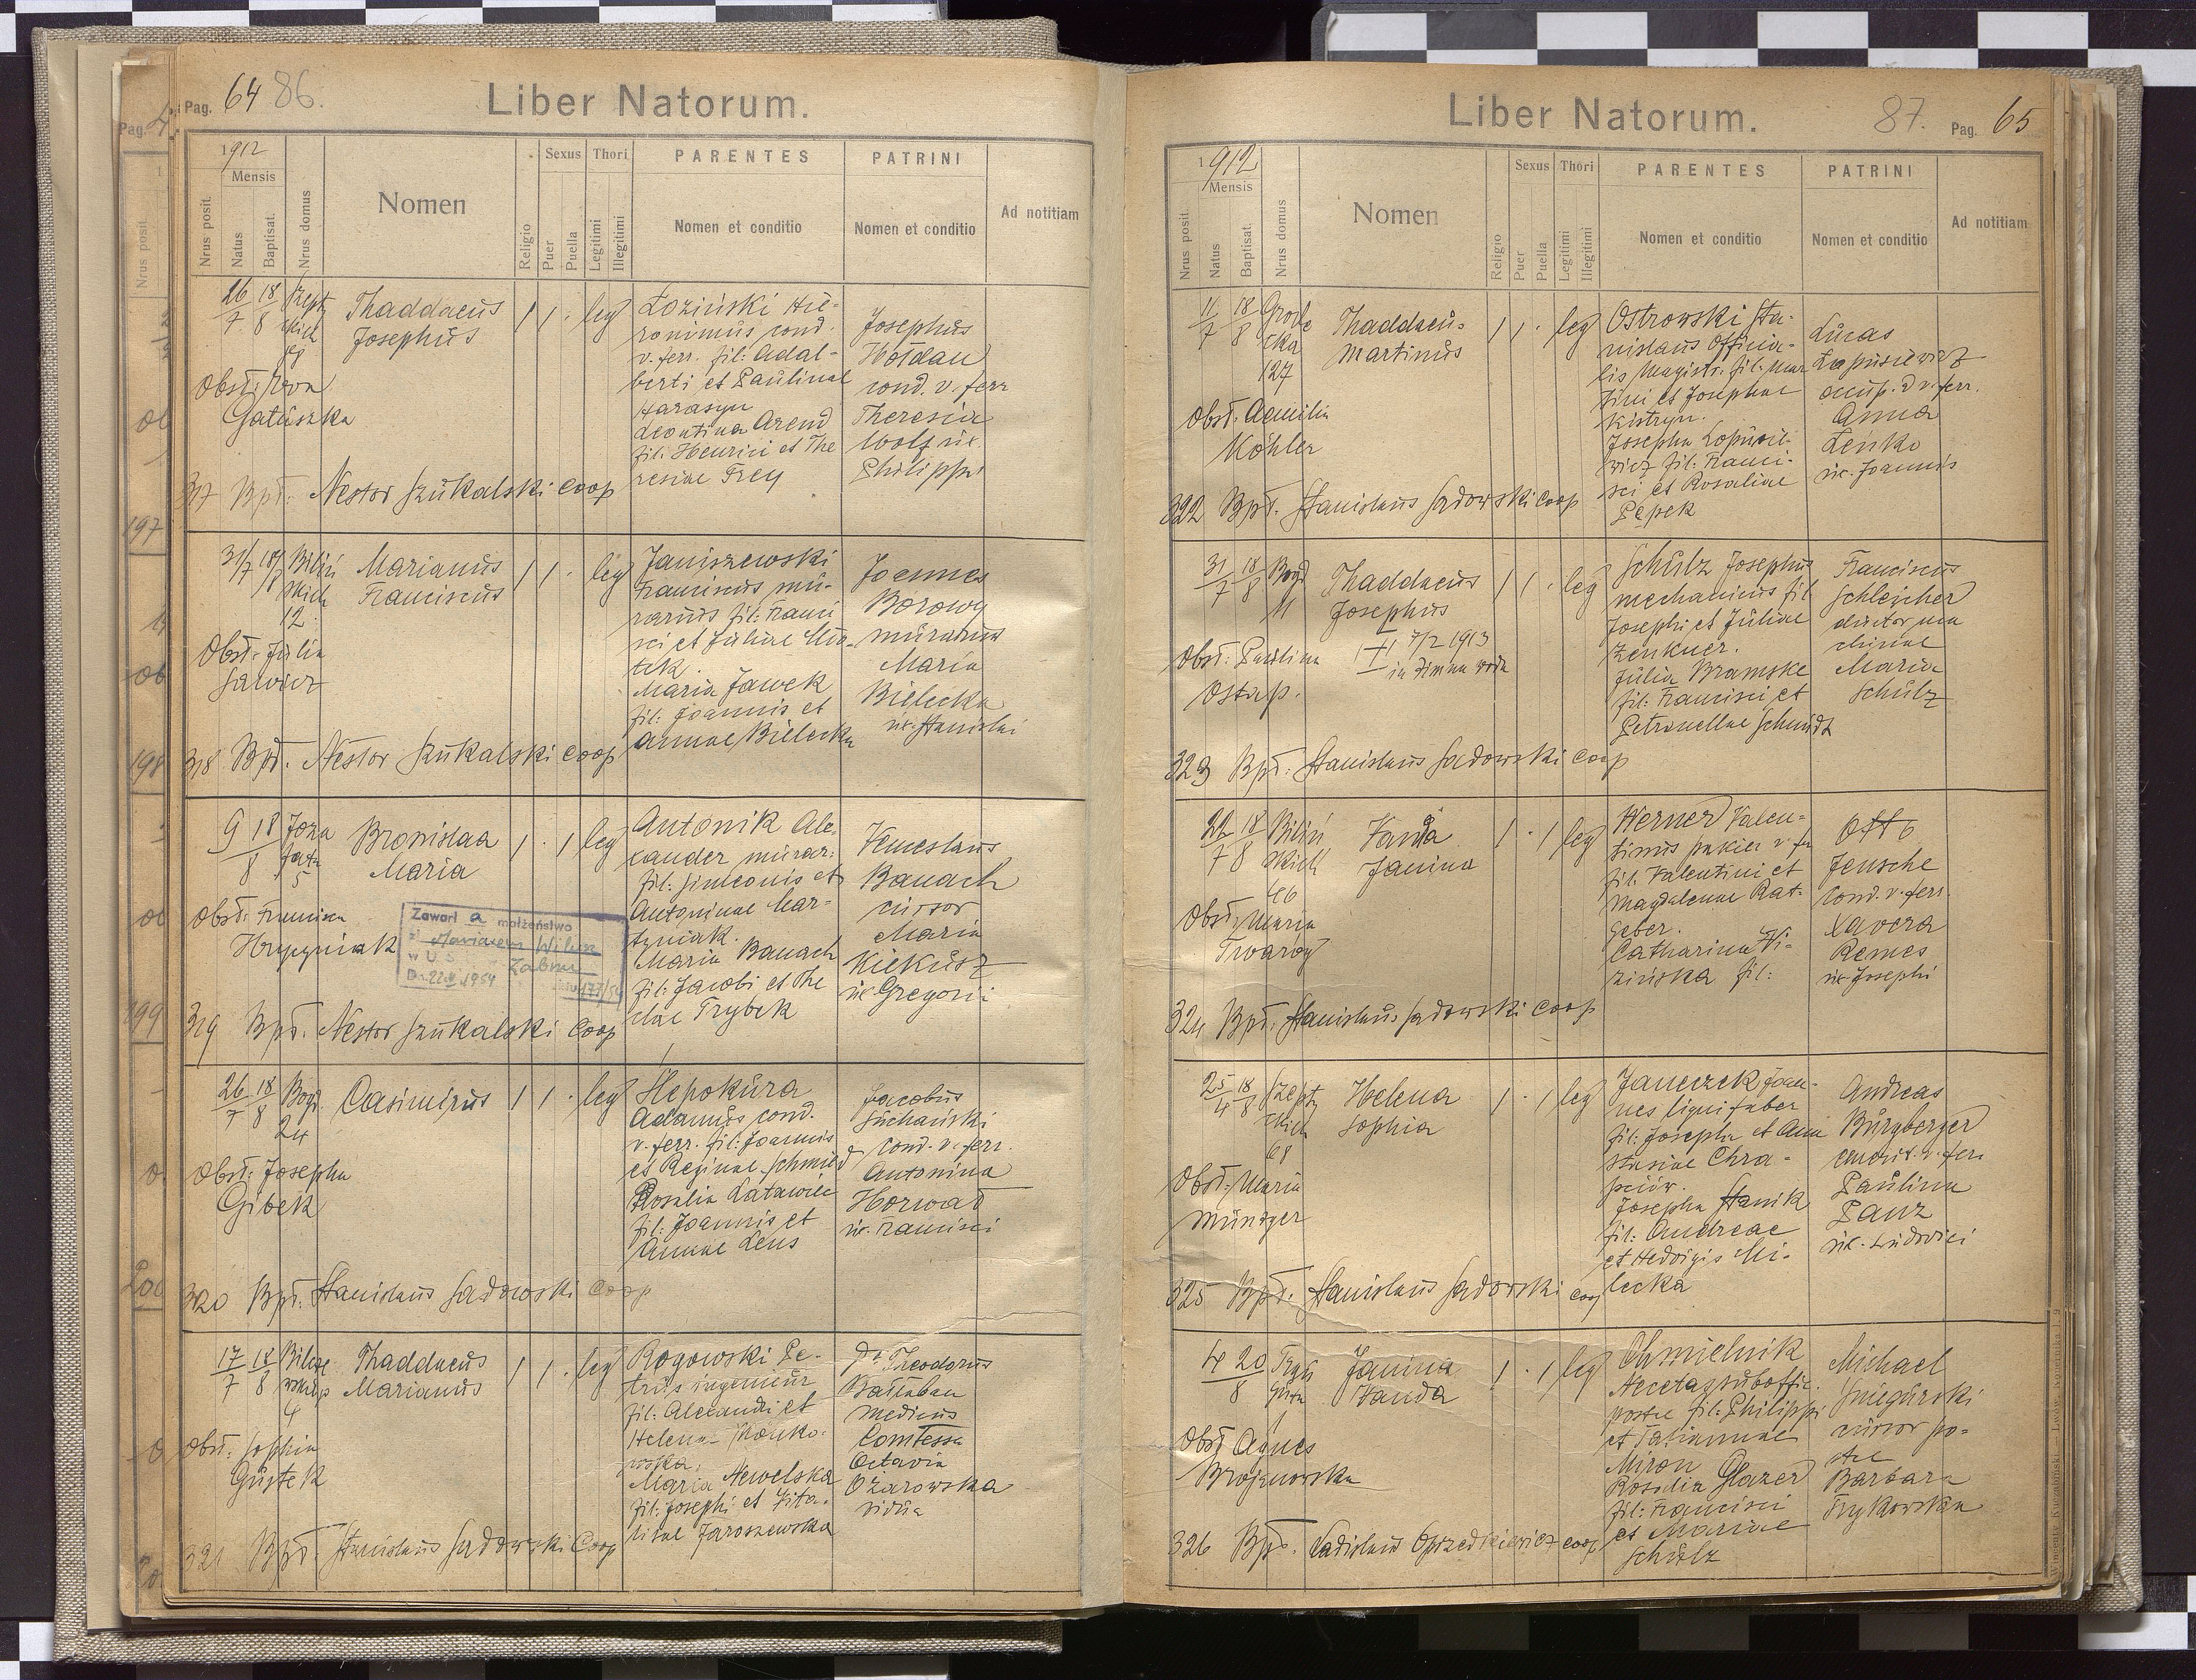 Pag. 64 86.
Liber Natorum.
1912
Mensis
Nrus posit.
Natus
Baptisat.
Nrus domus
Nomen
Religio
Sexus
Puer
Puella
Thori
Legitimi
Illegitimi
PARENTES
Nomen et conditio
PATRINI
Nomen et conditio
Ad notitiam
26/7 18/8 Thaddaeus
Josephus
1 1 · leg
Łoziński Hie-
ronimus cond.
v. ferr. fil: Adal-
berti et Paulinae
Harasyn
Leontina Arend
fil: Henrici et The
resiae Frey
Josephus
cond. v. ferr
Theresia
Wolf ux.
Philippi
Obst:
Gałuszka
317 Bpt. Nestor Szukalski coop
31/7 18/8 Biliń
skich
12
Marianus
Franciscus
1 1 · leg
Janiszewski
Franciscus mu-
rarius fil: Franci
sci et Juliae
Maria Jawek
fil: Joannis et
Annae Bielecka
Joannes
Borowy
murarius
Maria
Bielecka
ux. Stanislai
Obst: Julia
Sawicz
318 Bpt. Nestor Szukalski coop
9 18/8
5
Bronislaa
Maria
1 · 1 leg
Antonik Ale-
xander murar:
fil: Simeonis et
Antoninae Mar-
tyniak.
Maria Banach
fil: Jacobi et The
clae Trybek
Venceslaus
Banach
cursor
Maria
Kiekusz
ux Gregorii
Obst: Francisca
Hrycyniak
Zawarł a małżeństwo
z Marianem
w U.S.
319 Bpt. Nestor Szukalski coop
26/7 18/8 Bogd.
24
Casimirus
1 1 · leg
Hepokura
Adamus cond.
v. ferr. fil: Joannis
et Reginae Schmied
Rosalia Latawiec
fil: Joannis et
Annae Leus
Jacobus
Suchański
cond. v. ferr.
Antonina
Horwad
ux. Francisci
Obst: Josepha
Gibek
320 Bpt. Stanislaus Sadowski coop
17/7 18/8
4
Thaddaeus
Marianus
1 1 · leg
Rogowski Pe-
trus ingenieur
fil: Alexandri et
Helenae
Maria Newelska
fil: Josephi et Vita-
liae Jaroszewska
Dr Theodorus
Bałłaban
medicus
Comtessa
Octavia
Ożarowska
vidua
Obst: Sophia
Gustek
321 Bpt. Stanislaus Sadowski Coop
Liber Natorum.
87. Pag. 65
1912
Mensis
Nrus posit.
Natus
Baptisat.
Nrus domus
Nomen
Religio
Sexus
Puer
Puella
Thori
Legitimi
Illegitimi
PARENTES
Nomen et conditio
PATRINI
Nomen et conditio
Ad notitiam
11/7 18/8 Grode
cka
127
Thaddaeus
Martinus
1 1 · leg
Ostrowski Sta-
nislaus officia-
lis Magistr. fil: Mar
tini et Josephae
Kistryn.
Josepha Łopusie-
wicz fil: Franci-
sci et Rosaliae
Pępek
Lucas
Łapusiewicz
occup. a v. ferr.
Anna
Lenko
ux. Joannis
Obst: Aemilia
Köhler
322 Bpt. Stanislaus Sadowski coop
31/7 18/8 Bogd
11
Thaddaeus
Josephus
1 1 · leg
Schulz Josephus
mechanicus fil
Josephi et Juliae
Zenkner.
Julia Bramske
fil: Francisci et
Petronellae Schmidt
Franciscus
Schleicher
director ma
chinae
Maria
Schulz
† 7/2 1913
in Zimna woda
Obst: Paulina
Ostap.
323 Bpt: Stanislaus Sadowski coop
22/7 18/8 Biliń
skich
46
Vanda
Janina
1 · 1 leg
Werner Valen-
tinus pakier v fe
fil: Valentini et
Magdalenae Rat-
geber.
Catharina Wi-
zińska fil:
Otto
Jensche
cond. v. ferr.
Xavera
Remes
ux Josephi
Obst: Maria
Twaróg
324 Bpt. Stanislaus Sadowski coop
25/4 18/8 Szepty
ckich
68
Helena
Sophia
1 · 1 leg
Janeczek Joan-
nes lignifaber
fil: Josepha et Ana
stasiae Chra-
pciów.
Josepha Stanik
fil: Andreae
et Hedvigis Mi-
lecka
Andreas
Burgberger
emerit. v. ferr
Paulina
Panz
ux. Ludovici
Obst: Maria
Müntzer
325 Bpt. Stanislaus Sadowski coop
4 20/8
1
Janina
Vanda
1 · 1 leg
Chmielnik
Aecetas suboffic.
postae fil: Philippi
et Tatiannae
Miron
Rosalia Glazer
fil: Francisci
et Mariae
Schulz
Michael
Sniegurski
cursor po-
stae
Barbara
Trykowska
Obst Agnes
Brojanowska
326 Bpt. Ladislaus coop